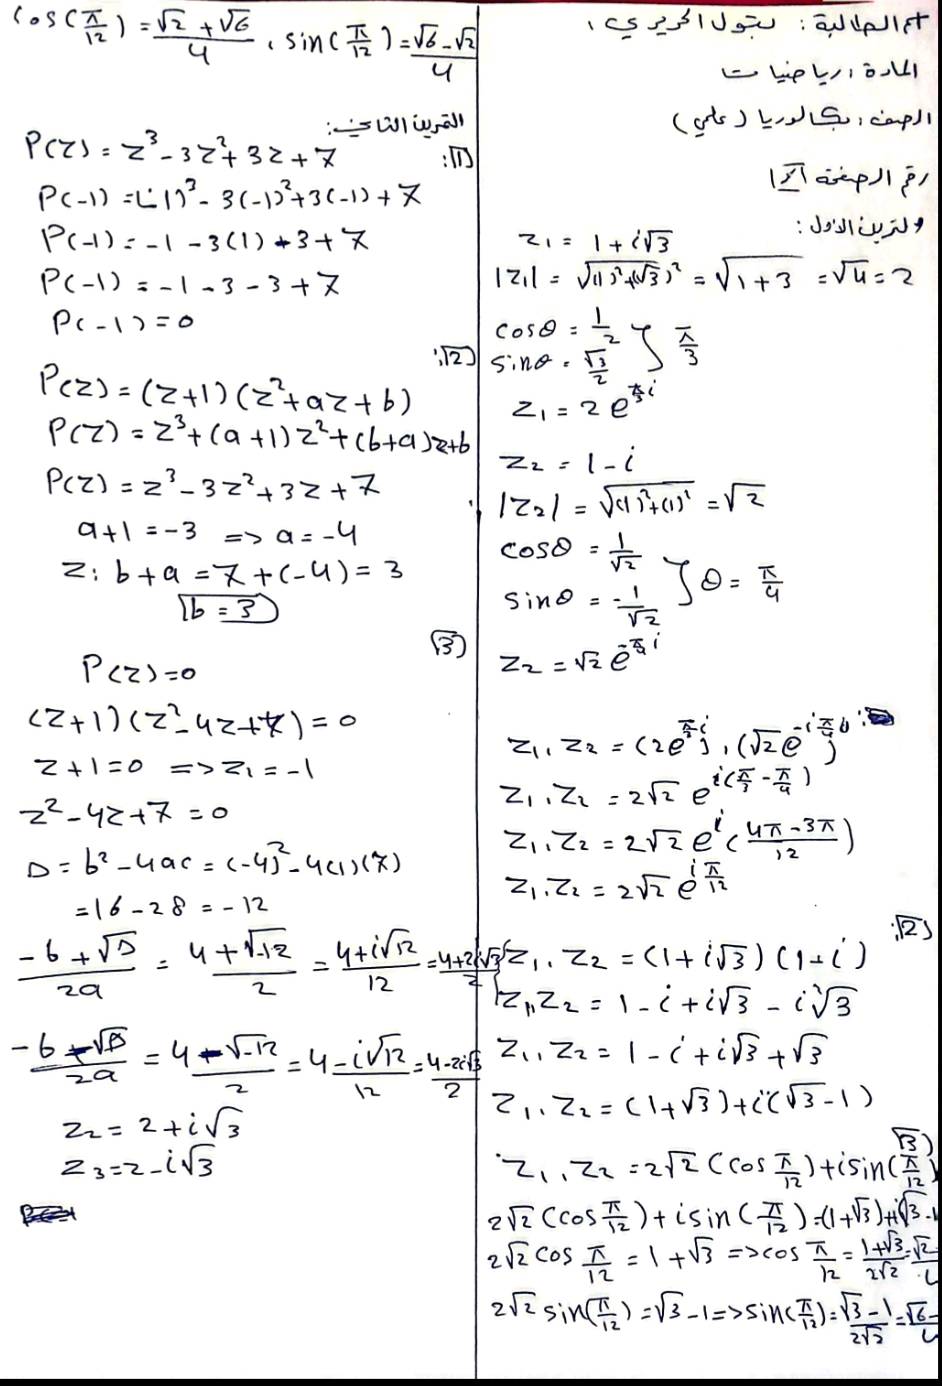 اسم الطالبة: بتول الحريري،
المادة: رياضيات
الصف: بكالوريا (علمي)
رقم الصفحة 1
التمرين الأول:
z₁ = 1 + i√3
|z₁| = √((1)²+(√3)²) = √(1+3) = √4 = 2
cosθ = 1/2
sinθ = √3/2 } π/3
z₁ = 2 e^(π/3 i)
z₂ = 1 - i
|z₂| = √((1)²+(1)²) = √2
cosθ = 1/√2
sinθ = -1/√2 } θ = π/4
z₂ = √2 e^(-π/4 i)
z₁ . z₂ = (2e^(π/3 i)) . (√2 e^(-i π/4))
z₁ . z₂ = 2√2 e^(i(π/3 - π/4))
z₁ . z₂ = 2√2 e^i((4π-3π)/12)
z₁ . z₂ = 2√2 e^(i π/12)
2):
z₁ . z₂ = (1+i√3) (1-i)
z₁ . z₂ = 1 - i + i√3 - i²√3
z₁ . z₂ = 1 - i + i√3 + √3
z₁ . z₂ = (1+√3) + i(√3-1)
3)
z₁ . z₂ = 2√2 (cos π/12) + i sin(π/12)
2√2 (cos π/12) + i sin(π/12) = (1+√3) + i(√3-1
2√2 cos π/12 = 1+√3 => cos π/12 = (1+√3)/(2√2) = √2
2√2 sin(π/12) = √3-1 => sin(π/12) = (√3-1)/(2√2) = √6-
cos(π/12) = (√2+√6)/4 ، sin(π/12) = (√6-√2)/4
التمرين الثاني:
1):
P(z) = z³ - 3z² + 3z + 7
P(-1) = (-1)³ - 3(-1)² + 3(-1) + 7
P(-1) = -1 - 3(1) + 3 + 7
P(-1) = -1 - 3 - 3 + 7
P(-1) = 0
2):
P(z) = (z+1) (z²+az+b)
P(z) = z³ + (a+1) z² + (b+a) z+b
P(z) = z³ - 3z² + 3z + 7
a+1 = -3 => a = -4
z: b+a = 7 + (-4) = 3
b = 3
3)
P(z) = 0
(z+1) (z² - 4z + 7) = 0
z+1=0 => z₁ = -1
z² - 4z + 7 = 0
D = b² - 4ac = (-4)² - 4(1)(7)
= 16 - 28 = -12
(-b+√D)/2a = (4+√-12)/2 = (4+i√12)/12 = (4+2i√3)/2
(-b-√D)/2a = (4-√-12)/2 = (4-i√12)/12 = (4-2i√3)/2
z₂ = 2 + i√3
z₃ = 2 - i√3